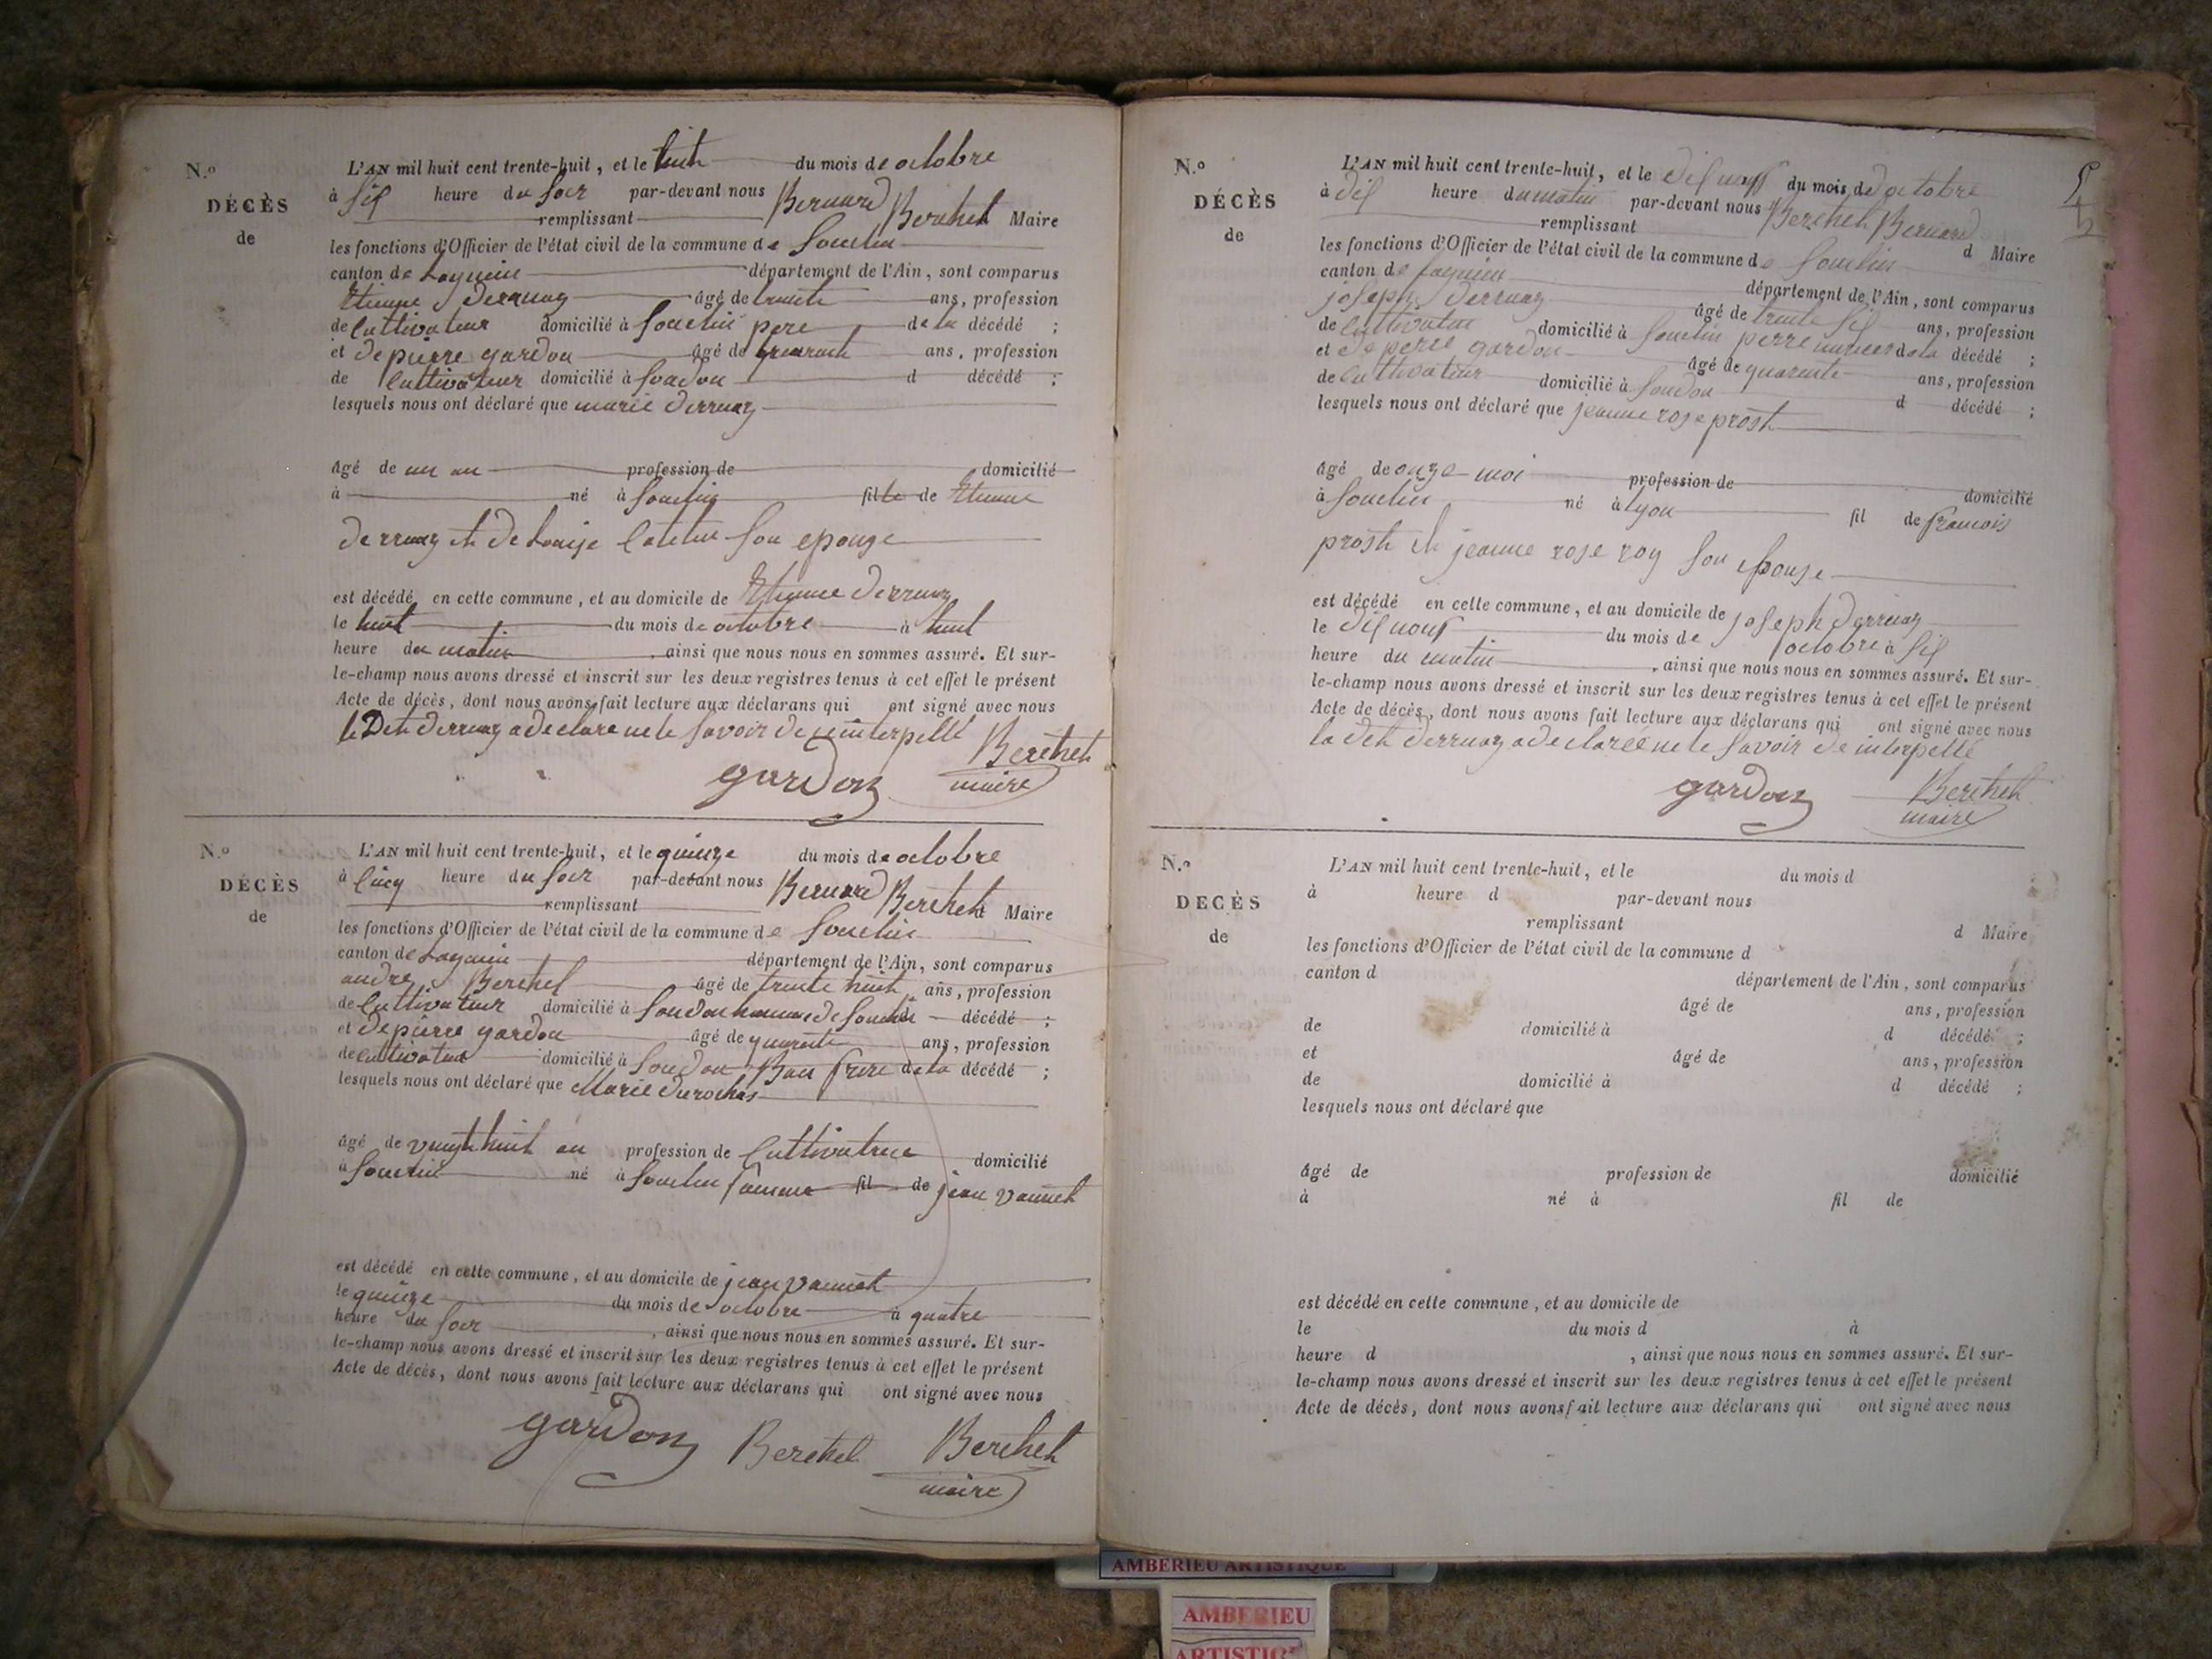 N.º
DÉCÈS
de
L'AN mil huit cent trente-huit, et le huit du mois de octobre
à sis heure du soir par-devant nous Bernard Berthet Maire
remplissant
les fonctions d'Officier de l'état civil de la commune de Souclin
canton de Lagnieu département de l'Ain, sont comparus
Etienne Derruaz âgé de trente ans, profession
de cultivateur domicilié à Souclin pere de la décédé ;
et de pierre gardon âgé de ans, profession
de cultivateur domicilié à Soudon d décédé ;
lesquels nous ont déclaré que marie derruaz
âgé de un an profession de domicilié
à né à Souclin fille de Etienne
derruaz et de Louise son epouze
est décédé en cette commune, et au domicile de Etienne Derruaz
le huit du mois de octobre à huit
heure du matin, ainsi que nous nous en sommes assuré. Et sur-
le-champ nous avons dressé et inscrit sur les deux registres tenus à cet effet le présent
Acte de décès, dont nous avons fait lecture aux déclarans qui ont signé avec nous
le Det derruaz a declare ne le savoir de interpellé
gardon Berthet
maire
N.º
DÉCÈS
de
L'AN mil huit cent trente-huit, et le quinze du mois de octobre
à cinq heure du soir par-devant nous Bernard Berthet Maire
remplissant
les fonctions d'Officier de l'état civil de la commune de Souclin
canton de Lagnieu département de l'Ain, sont comparus
andre Berthet âgé de trente huit ans, profession
de cultivateur domicilié à Soudon décédé ;
et de pierre gardon âgé de quarente ans, profession
de cultivateur domicilié à Soudon Bau frere de la décédé ;
lesquels nous ont déclaré que Marie durochas
âgé de vingt huit an profession de cultivatrice domicilié
à Souclin né à Souclin fil de jean vannet
est décédé en cette commune, et au domicile de jean vannet
le quinze du mois de octobre à quatre
heure du soir, ainsi que nous nous en sommes assuré. Et sur-
le-champ nous avons dressé et inscrit sur les deux registres tenus à cet effet le présent
Acte de décès, dont nous avons fait lecture aux déclarans qui ont signé avec nous
gardon Berthet Berthet
maire
N.º
DÉCÈS
de
L'AN mil huit cent trente-huit, et le dis nouf du mois de octobre
à dis heure du matin par-devant nous Berthet Bernard
remplissant d Maire
les fonctions d'Officier de l'état civil de la commune de Souclin
canton de Lagnieu département de l'Ain, sont comparus
joseph derruaz âgé de trente sis ans, profession
de cultivateur domicilié à Souclin perre de la décédé ;
et de pere gardon âgé de quarente ans, profession
de cultivateur domicilié à Soudon d décédé ;
lesquels nous ont déclaré que jeanne rose prost
âgé de onze moi profession de domicilié
à Souclin né à lyon fil de francois
prost et jeanne rose roy son epouse
est décédé en cette commune, et au domicile de joseph derruaz
le dis nouf du mois de octobre à sis
heure du matin, ainsi que nous nous en sommes assuré. Et sur-
le-champ nous avons dressé et inscrit sur les deux registres tenus à cet effet le présent
Acte de décès, dont nous avons fait lecture aux déclarans qui ont signé avec nous
la det derruaz a declaréé ne le savoir de interpellé
gardon Berthet
maire
N.º
DECÈS
de
L'AN mil huit cent trente-huit, et le du mois d
à heure d par-devant nous
remplissant d Maire
les fonctions d'Officier de l'état civil de la commune d
canton d département de l'Ain, sont comparus
âgé de ans, profession
de domicilié à d décédé ;
et âgé de ans, profession
de domicilié à d décédé ;
lesquels nous ont déclaré que
âgé de profession de domicilié
à né à fil de
est décédé en cette commune, et au domicile de
le du mois d à
heure d , ainsi que nous nous en sommes assuré. Et sur-
le-champ nous avons dressé et inscrit sur les deux registres tenus à cet effet le présent
Acte de décès, dont nous avons fait lecture aux déclarans qui ont signé avec nous
AMBERIEU ARTISTIQUE
AMBERIEU
ARTISTIQUE